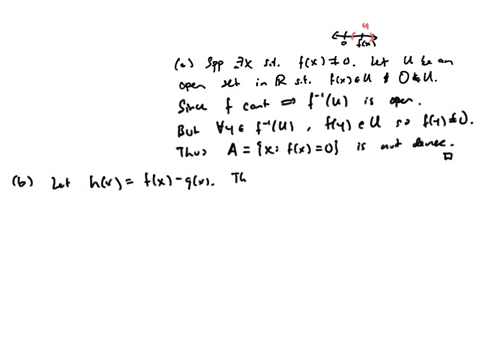 u
0 f(x)
(a) Spp ∃x s.t. f(x) ≠ 0. Let U be an
open set in ℝ s.t. f(x) ∈ U & 0 ∉ U.
Since f cont ⇒ f⁻¹(U) is open.
But ∀y ∈ f⁻¹(U), f(y) ∈ U so f(y) ≠ 0.
Thus A = {x: f(x) = 0} is not dense. □
(b) Let h(x) = f(x) - g(x). Th